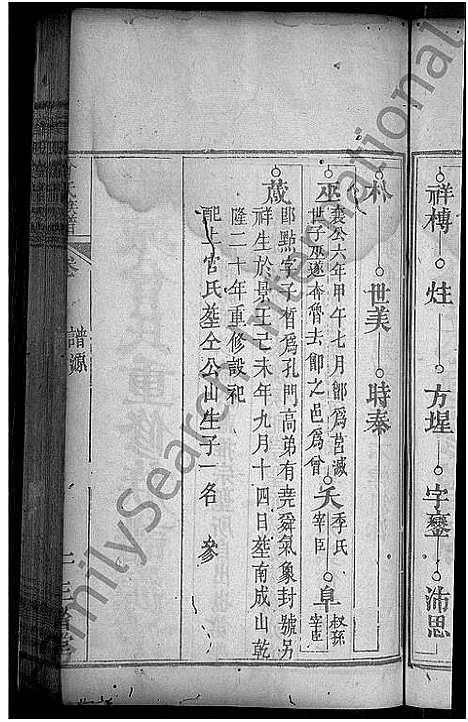 祥榑 炷 方堭 字鑾 沛思
朴 世美 時奉
巫 襄公六年甲午七月鄫爲莒滅
世子巫遂奔魯去鄫之邑爲曾
夭 季氏
宰臣
阜 叔孫
宰臣
蒧 即點字子晳爲孔門高弟有堯舜氣象封號另
祥生於景王己未年九月十四日塟南成山乾
隆二十年重修設祀
配上官氏塟仝公山生子一名 參
譜源
FamilySearch International